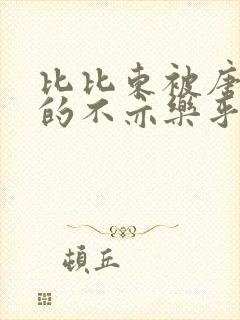 比比东被唐
的不亦乐乎
頓丘